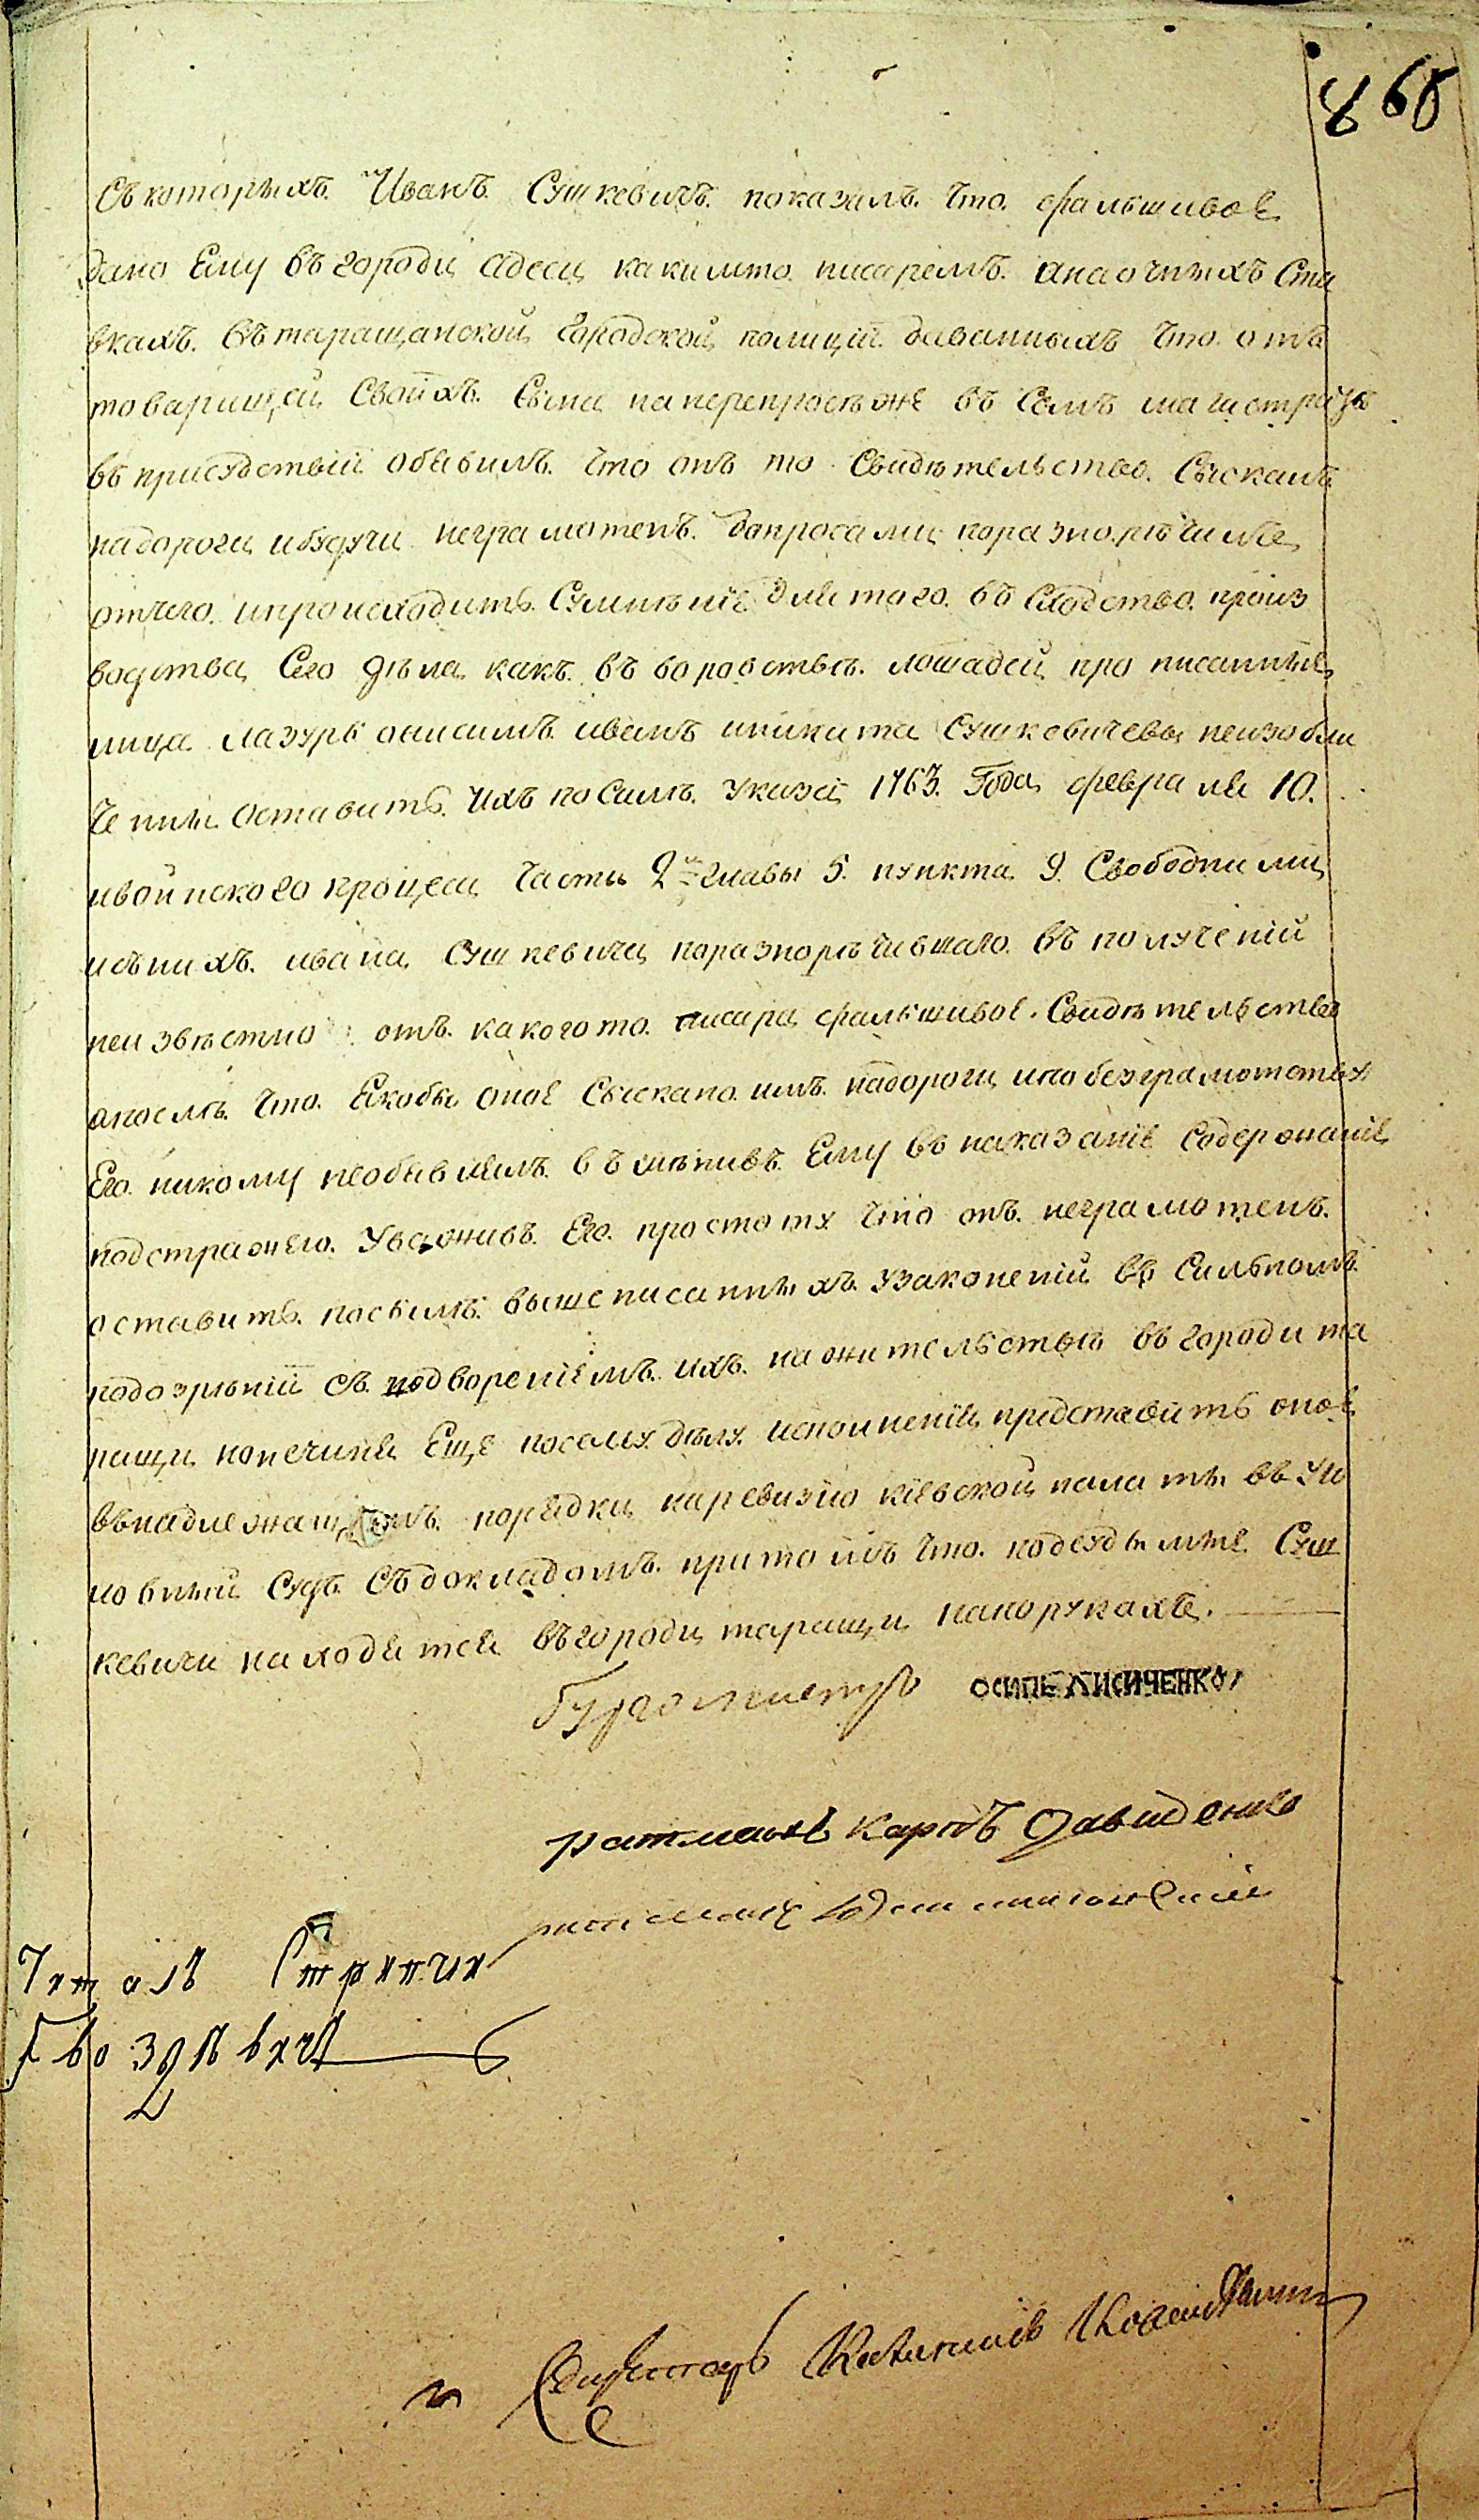 865
Съ которыхъ Иванъ Сушкевичъ показалъ что фальшивое
дано Ему въ городи Адеси какимто писаремъ анаочныхъ Ста
вкахъ въ таращанской городской полиціи даванныхъ что отъ
товарищей Своихъ Сына на перепросъ же въ Семъ магистратѣ
въ присудствіи обявилъ что онъ то Свидѣтельство Сыскалъ
надороги ибудучи неграмотенъ допросами поразноречилъ
отчего ипроисходитъ Сумнѣніе для того въ Слѣдство произ
водства Сего дѣла какъ въ воровствѣ лошадей прописанные
лица лазуръ онисимъ иванъ иникита Сушкевичевы неизобли
чены Оставить Ихъ по Силѣ указа 1763 Года февраля 10.
ивоинского процеса Части 2й главы 5. пункта 9. Свободными
изъ нихъ ивана Сушкевича поразноречившаго въ получении
неизвѣстно отъ какогото писара фальшивое Свидѣтельство
апосля что Якобы оное Сыскано имъ надороги ипобезграмотству
Его никому необявлялъ вмѣнивъ Ему въ наказаніе Содержаніе
подстражею Уваживъ Его простоту что онъ неграмотенъ
оставить посилѣ вышеписанныхъ узаконеній въ Сильномъ
подозрѣніи съ подвореніемъ ихъ на жительство въ городи та
ращи нопечиня Еще посему дѣлу исполненія представить оное
въ надлежащемъ порядки наревизію кіевской палаты въ Уго
ловный Судъ Съ докладомъ притомъ что подсудымые Суш
кевичи находятся въгороди таращи напорукахъ.
Бургомистръ ОСИПЪ ЛИСИЧЕНКО
ратманъ Карпъ Давиденко
ратманъ
Читалъ Стряпчи
Гвоздѣвичъ
Секретарь